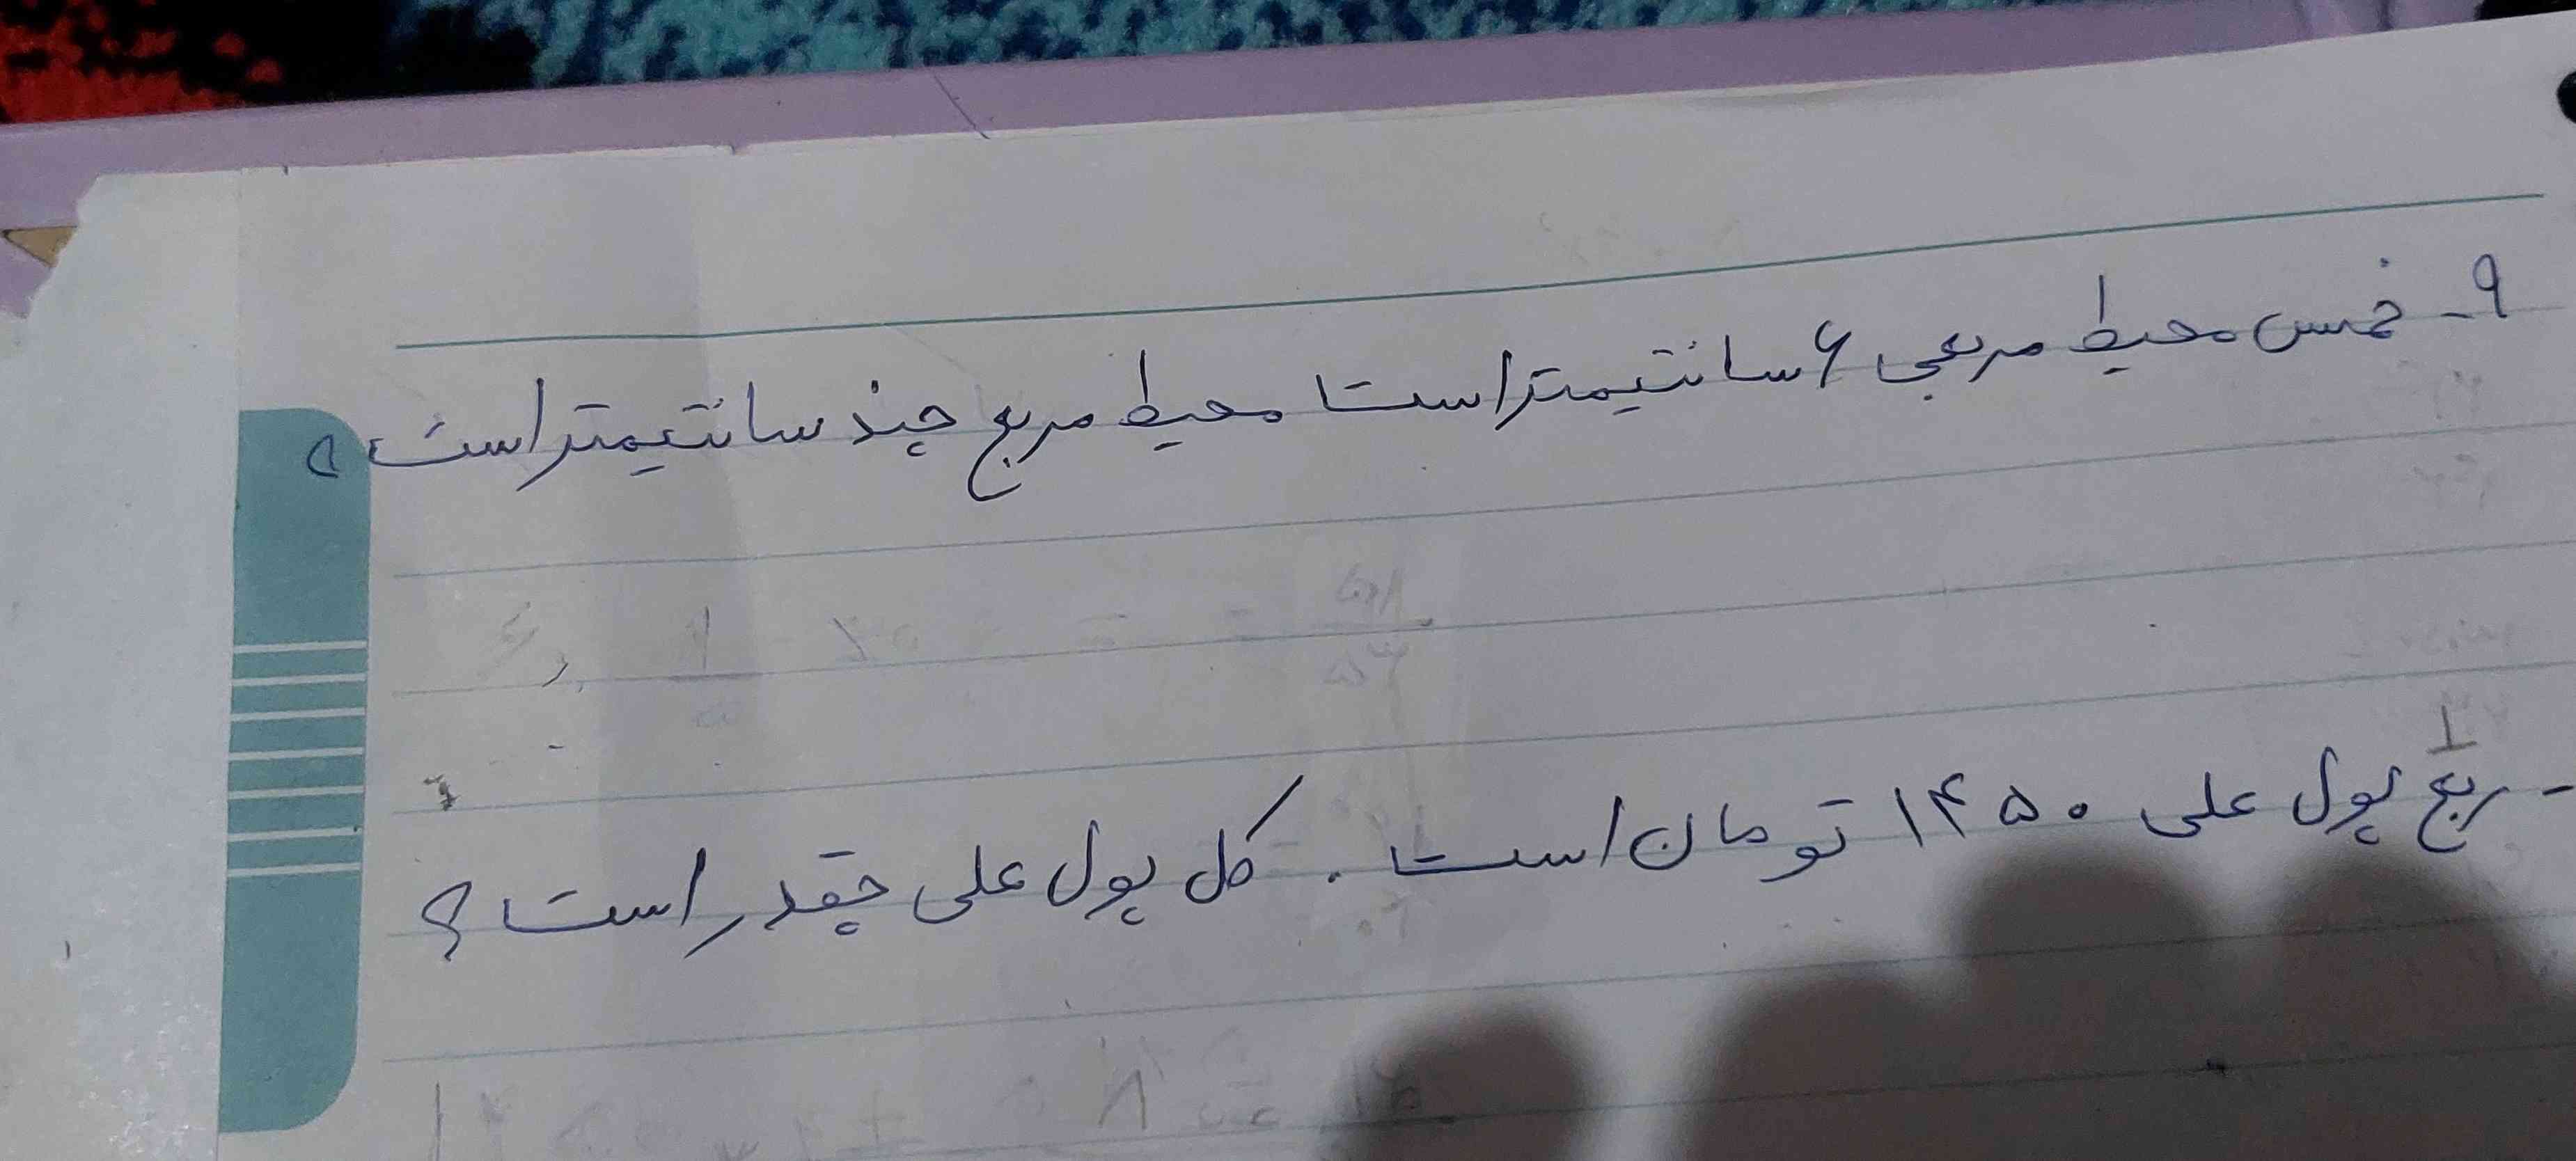 ۹- خمس محیط مربعی ۶ سانتیمتر است محیط مربع چند سانتیمتر است ؟
- ربع پول علی ۱۴۵۰ تومان است . کل پول علی چقدر است ؟